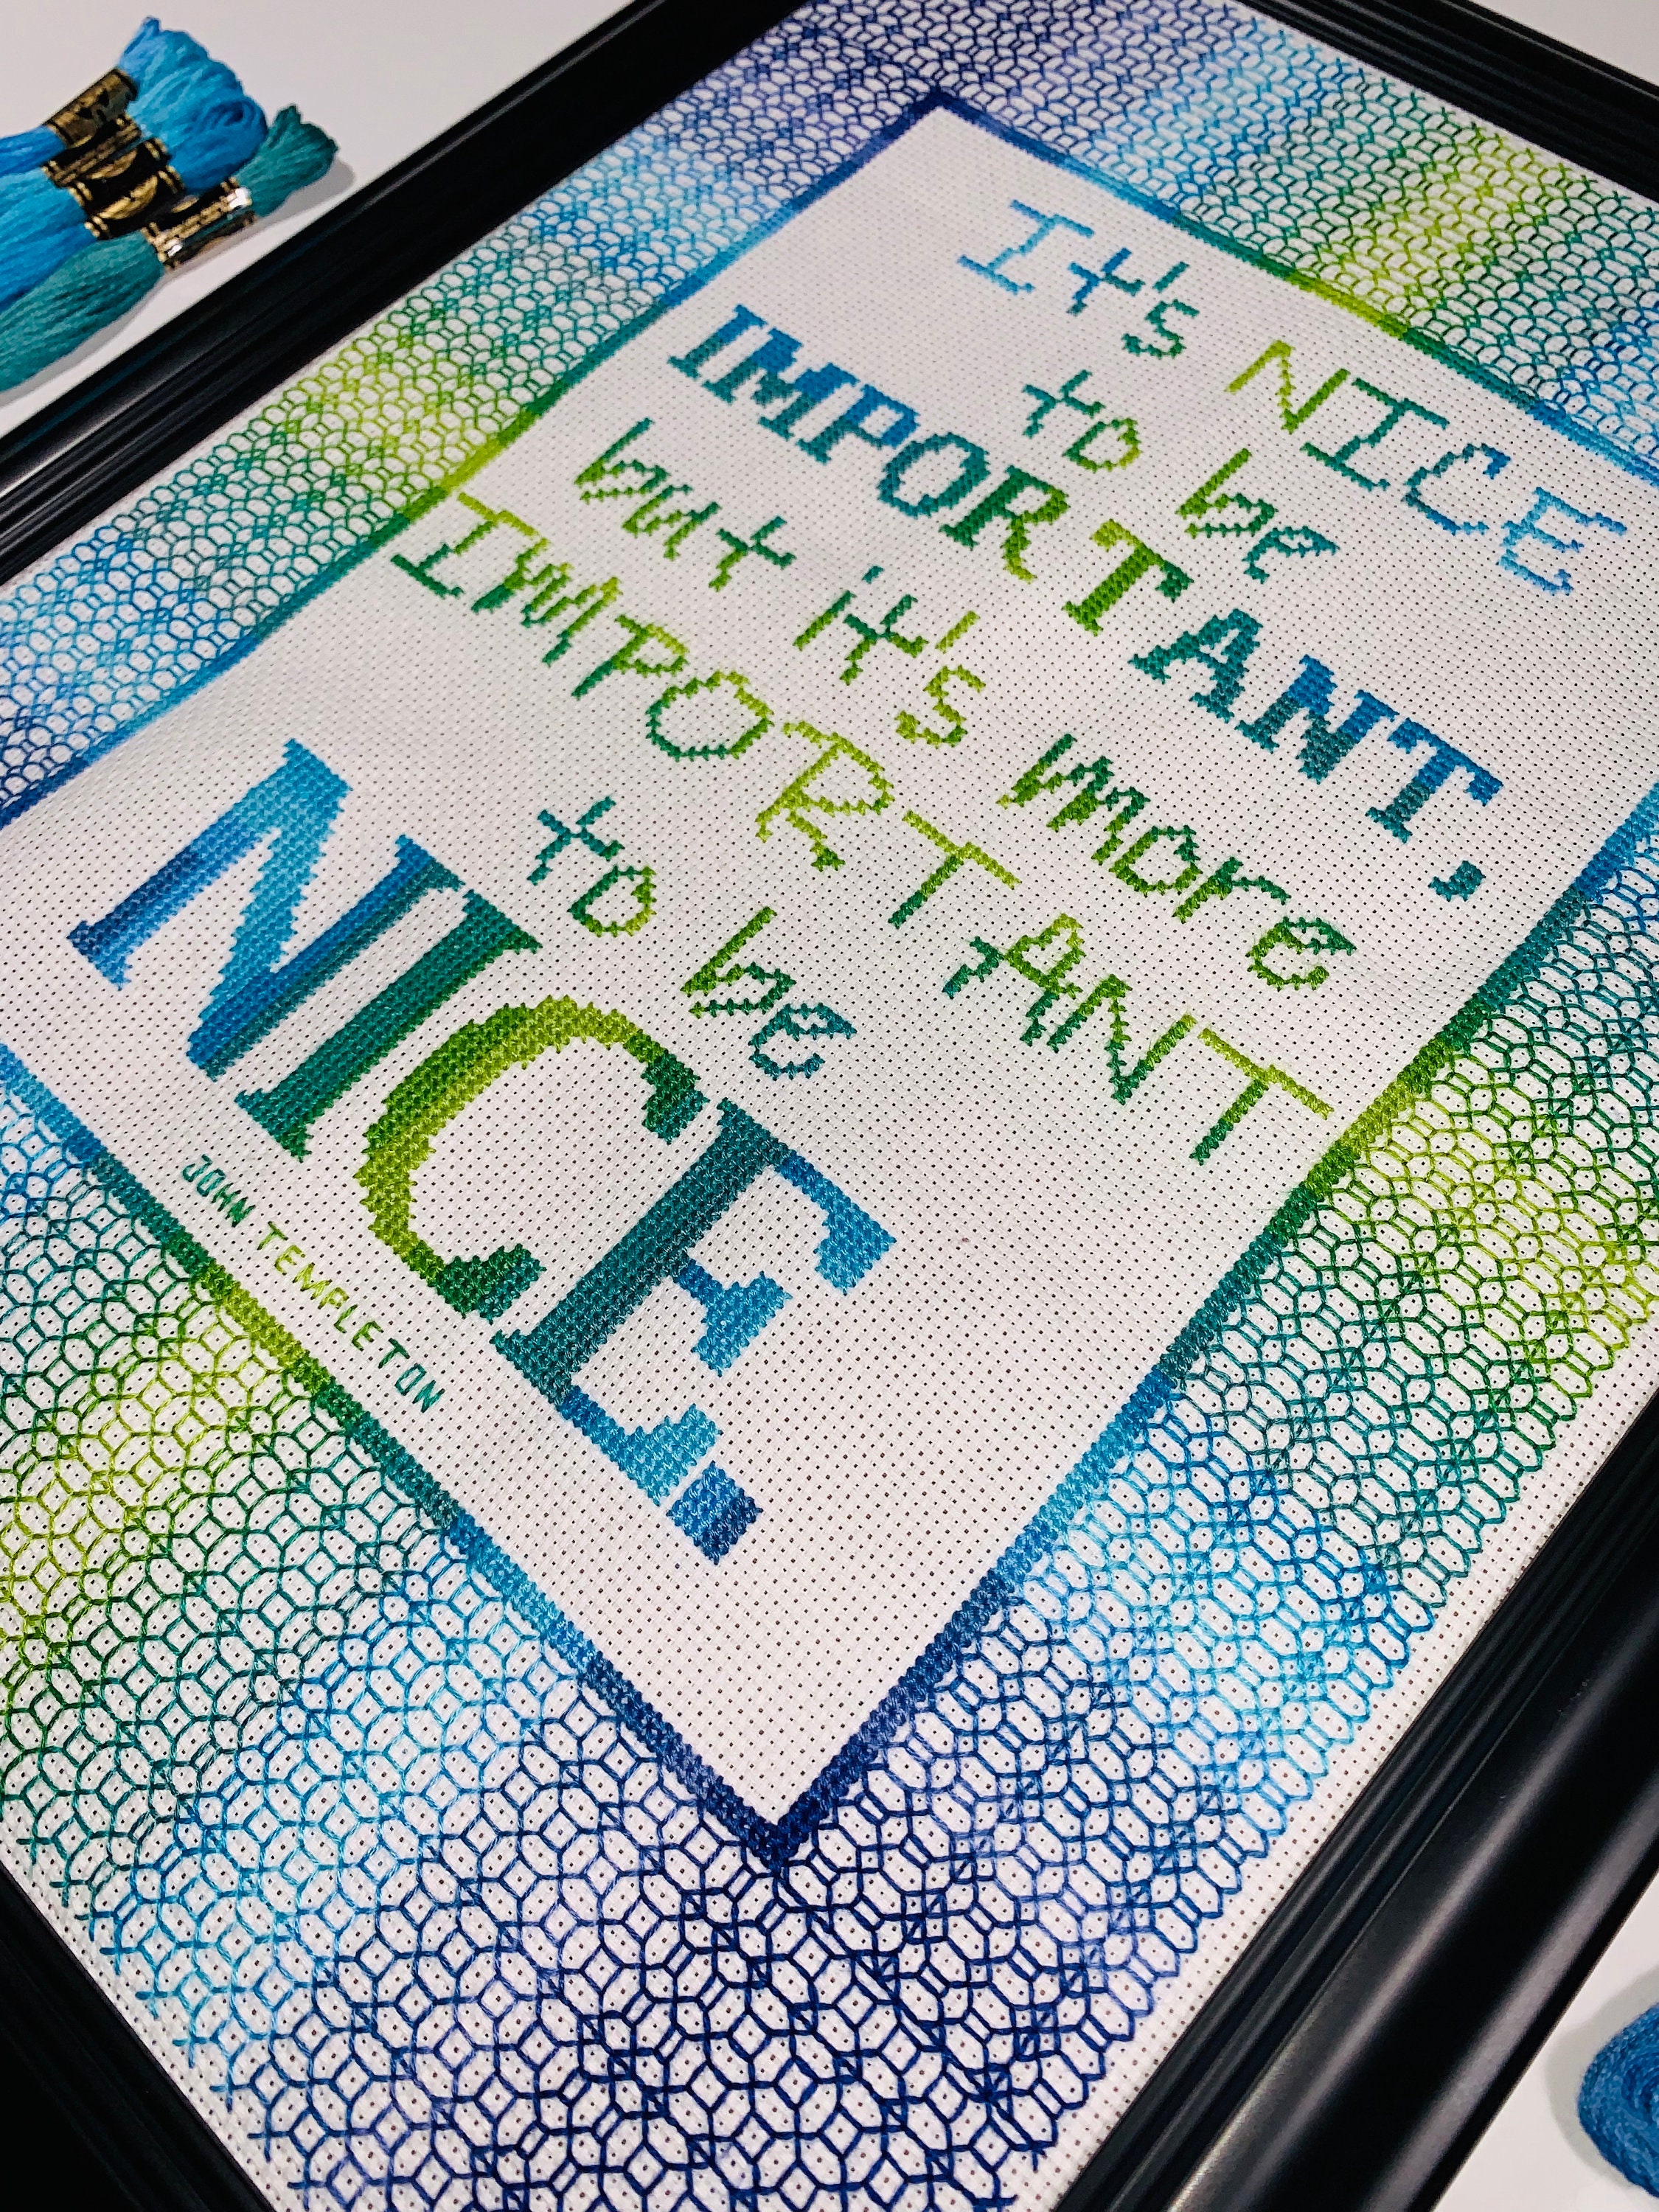 It's NICE
to be
IMPORTANT,
but it's more
IMPORTANT
to be
NICE.
JOHN TEMPLETON